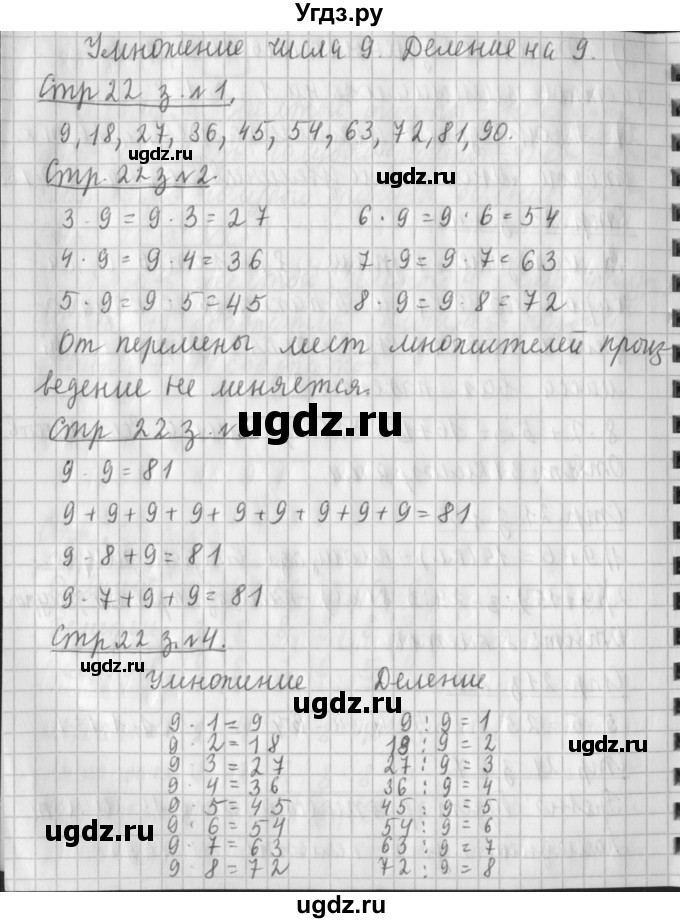 Угдз.ру
Умножение числа 9. Деление на 9.
Стр 22 з. №1.
9, 18, 27, 36, 45, 54, 63, 72, 81, 90.
ugdz.ru
ugdz.ru
Стр. 22 з №2.
3 · 9 = 9 · 3 = 27 6 · 9 = 9 · 6 = 54
4 · 9 = 9 · 4 = 36 7 · 9 = 9 · 7 = 63
5 · 9 = 9 · 5 = 45 8 · 9 = 9 · 8 = 72
От перемены мест множителей произ-
ведение не меняется.
ugdz.ru
Стр 22 з. №
9 · 9 = 81
9 + 9 + 9 + 9 + 9 + 9 + 9 + 9 + 9 = 81
9 · 8 + 9 = 81
9 · 7 + 9 + 9 = 81
Стр 22 з. №4.
ugdz.ru
Умножение Деление
9 · 1 = 9 9 : 9 = 1
9 · 2 = 18 18 : 9 = 2
ugdz.ru
9 · 3 = 27 27 : 9 = 3
9 · 4 = 36 36 : 9 = 4
9 · 5 = 45 45 : 9 = 5
9 · 6 = 54 54 : 9 = 6
ugdz.ru
9 · 7 = 63 63 : 9 = 7
9 · 8 = 72 72 : 9 = 8
ugdz.ru